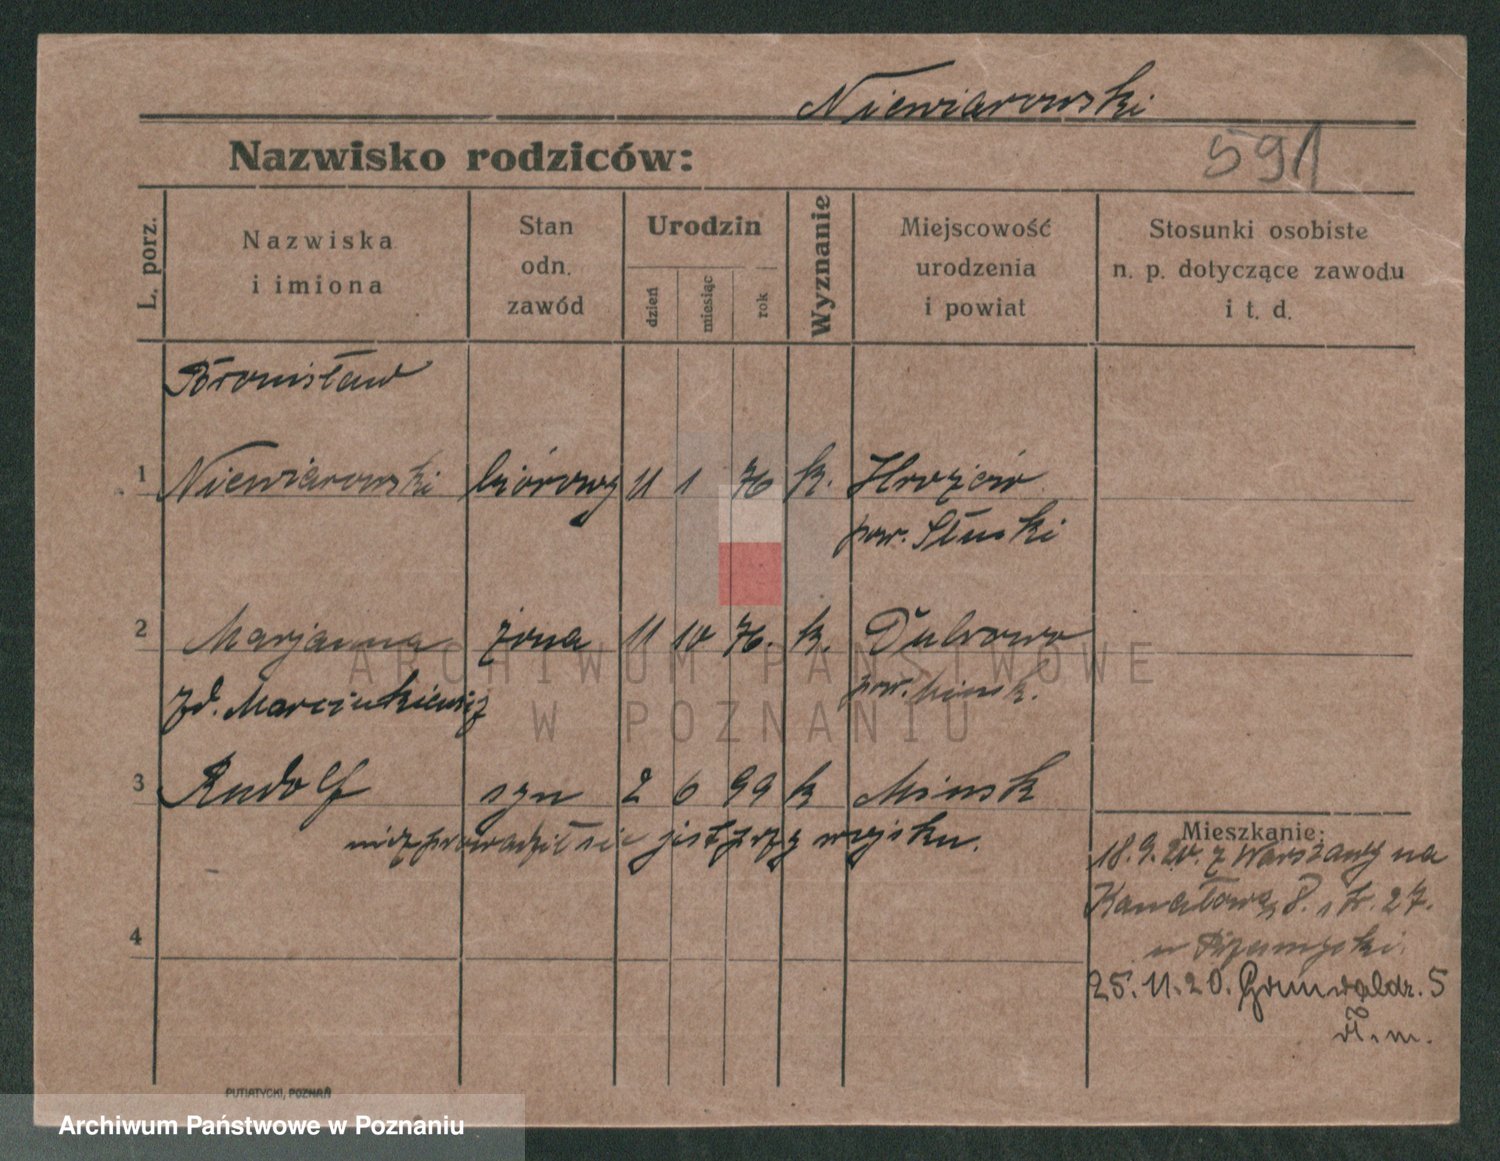 Niewiarowski
Nazwisko rodziców:
591
L. porz.
Nazwiska
i imiona
Stan
odn.
zawód
Urodzin
dzień
miesiąc
rok
Wyznanie
Miejscowość
urodzenia
i powiat
Stosunki osobiste
n. p. dotyczące zawodu
i t. d.
Bronisław
1 Niewiarowski biórowy 11 1 76 k. Hrozów
pow. Słucki
2 Marjanna żona 11 10 76. k. Dubrowo
zd. Marcinkiewicz pow. Minsk.
3 Rudolf syn 2 6 99 k Minsk
nie prowadził sie jest przy wojsku.
4
Mieszkanie:
18.9.20. z Warszawy na
Kanałową 8. 27.
25.11.20. Grunwaldz. 5
PUTIATYCKI, POZNAŃ
ARCHIWUM PAŃSTWOWE
W POZNANIU
Archiwum Państwowe w Poznaniu